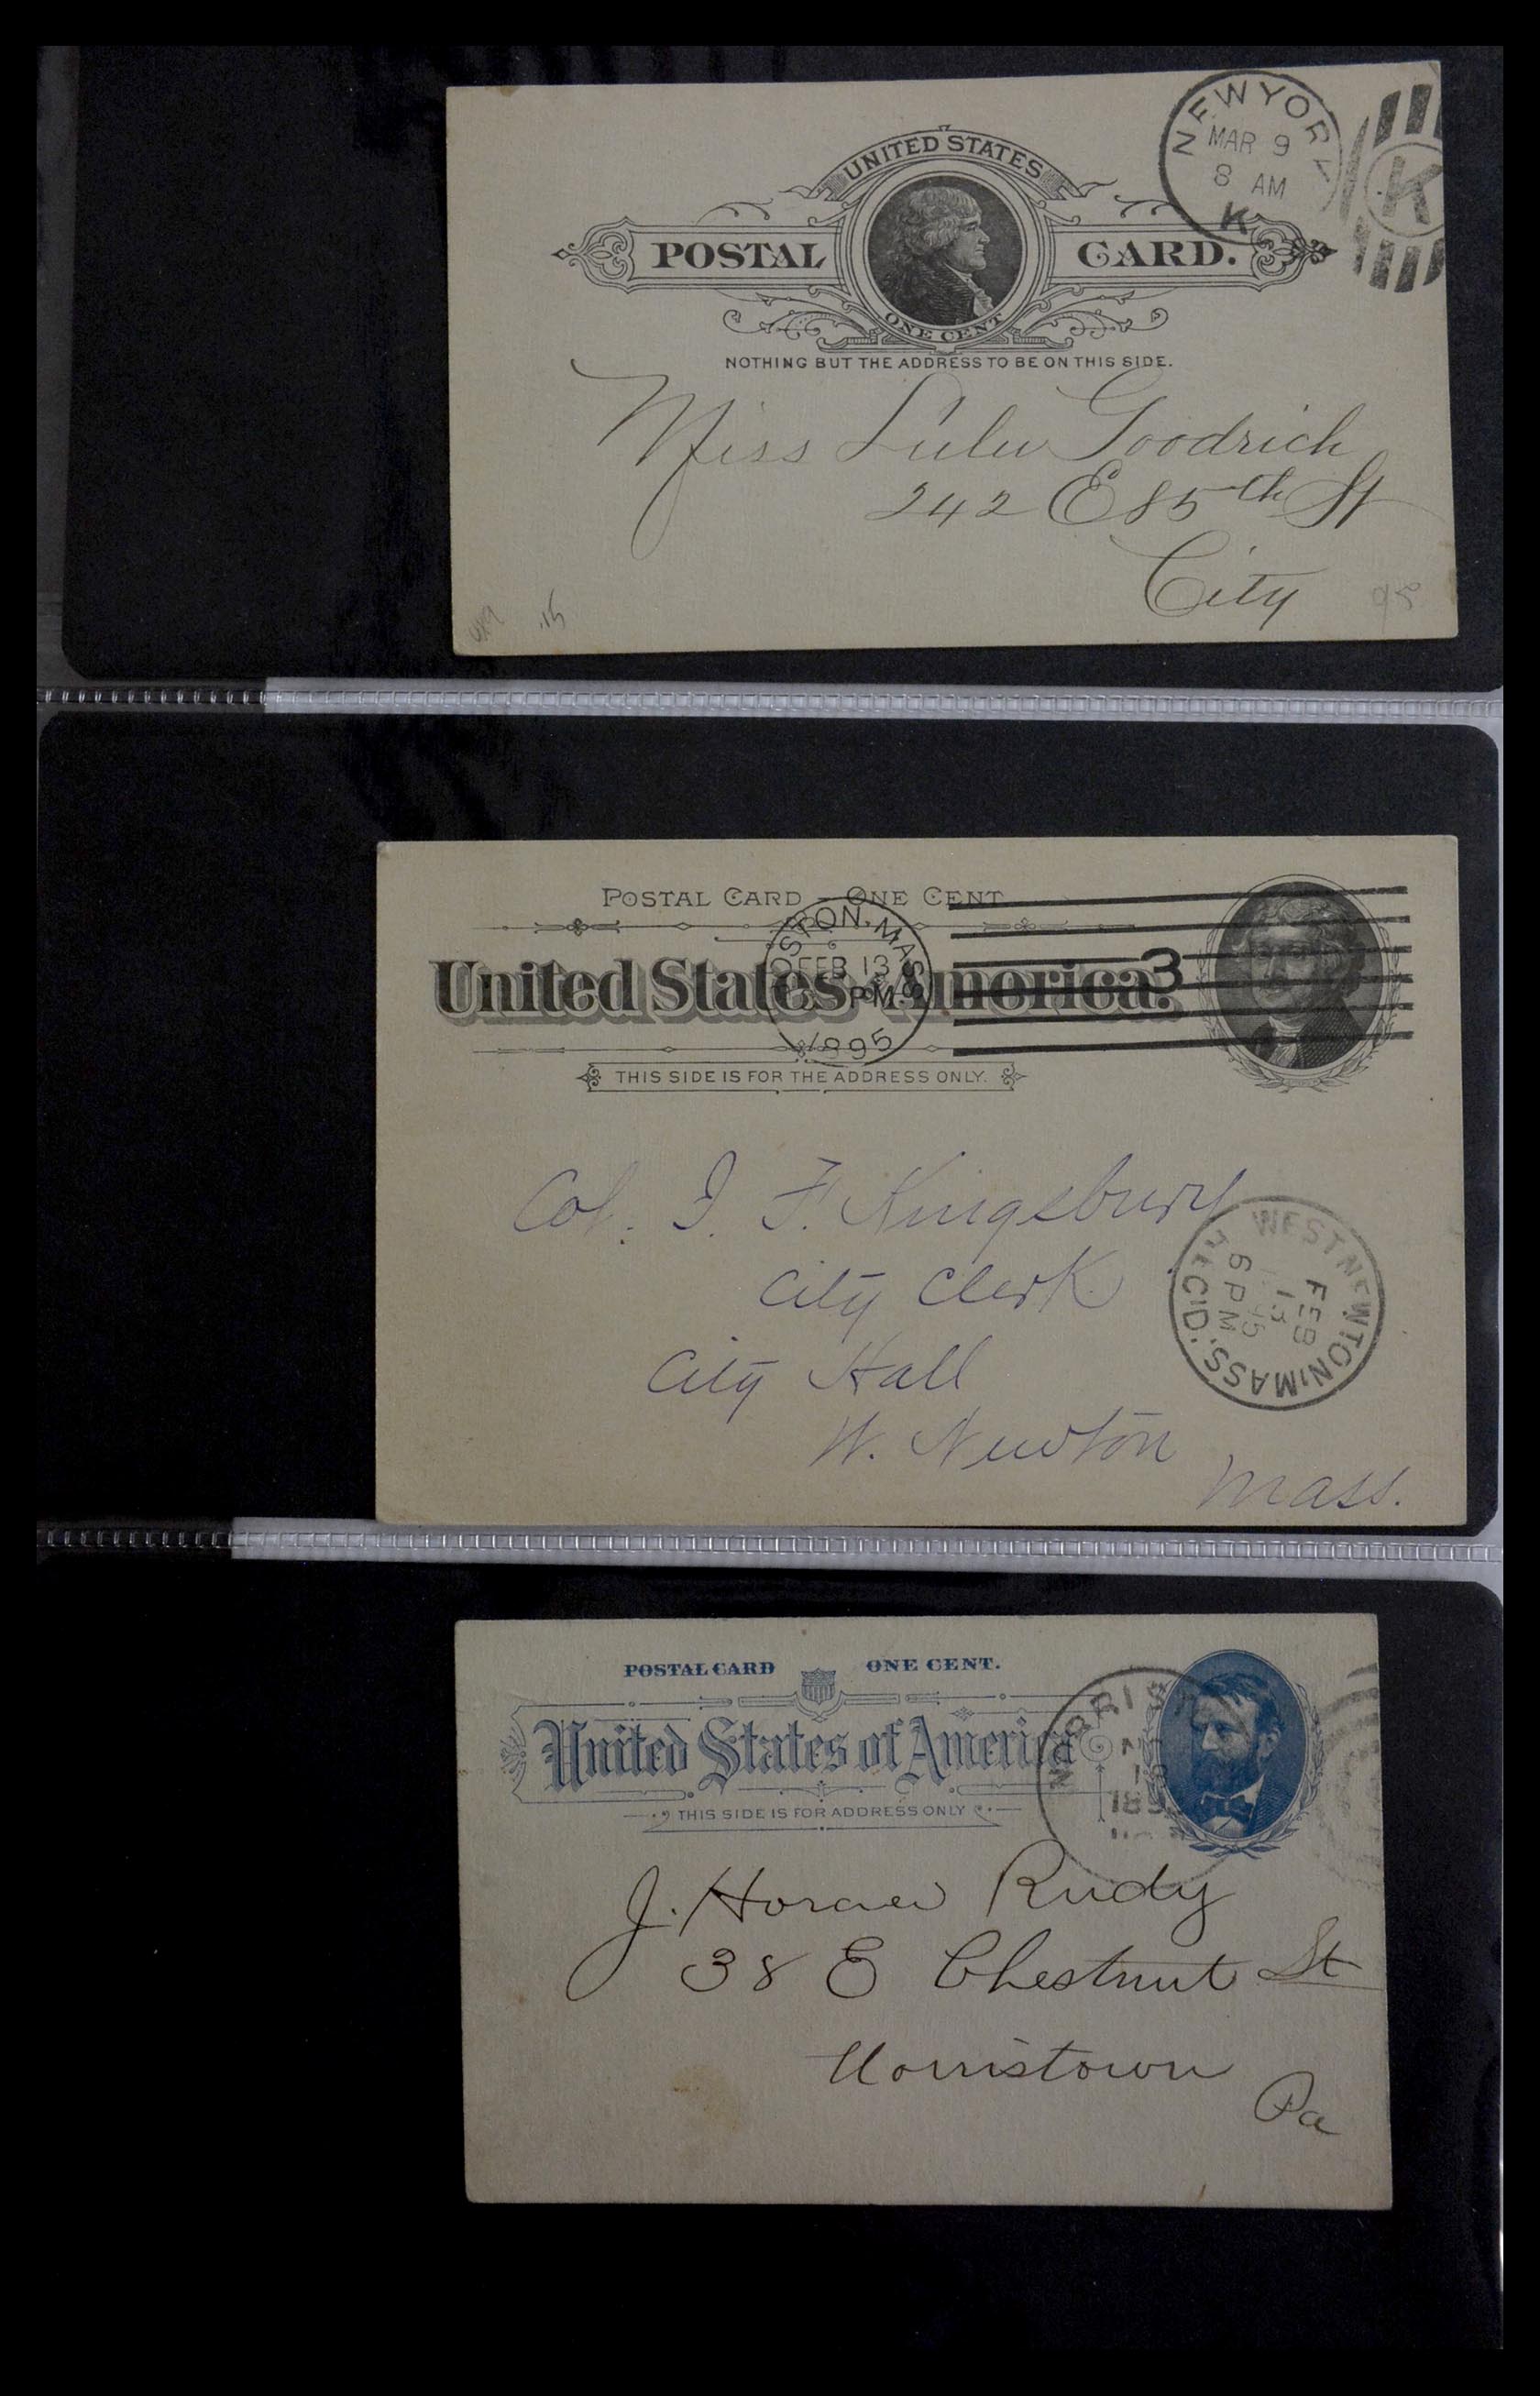 UNITED STATES
POSTAL CARD.
ONE CENT
NOTHING BUT THE ADDRESS TO BE ON THIS SIDE.
NEW YORK
MAR 9
8 AM
K
K
Miss Lulu Goodrich
242 E 85th St
City
.15
POSTAL CARD - ONE CENT
United States America.
THIS SIDE IS FOR THE ADDRESS ONLY.
BOSTON, MASS
FEB 13
PM
1895
3
Col. I. F. Kingsbury
City Clerk
City Hall
W. Newton
Mass.
WEST NEWTON, MASS. REC'D.
FEB
13
95
6 PM
POSTAL CARD ONE CENT.
United States of America
THIS SIDE IS FOR ADDRESS ONLY
J. Horace Rudy
38 E Chestnut St
Norristown
Pa